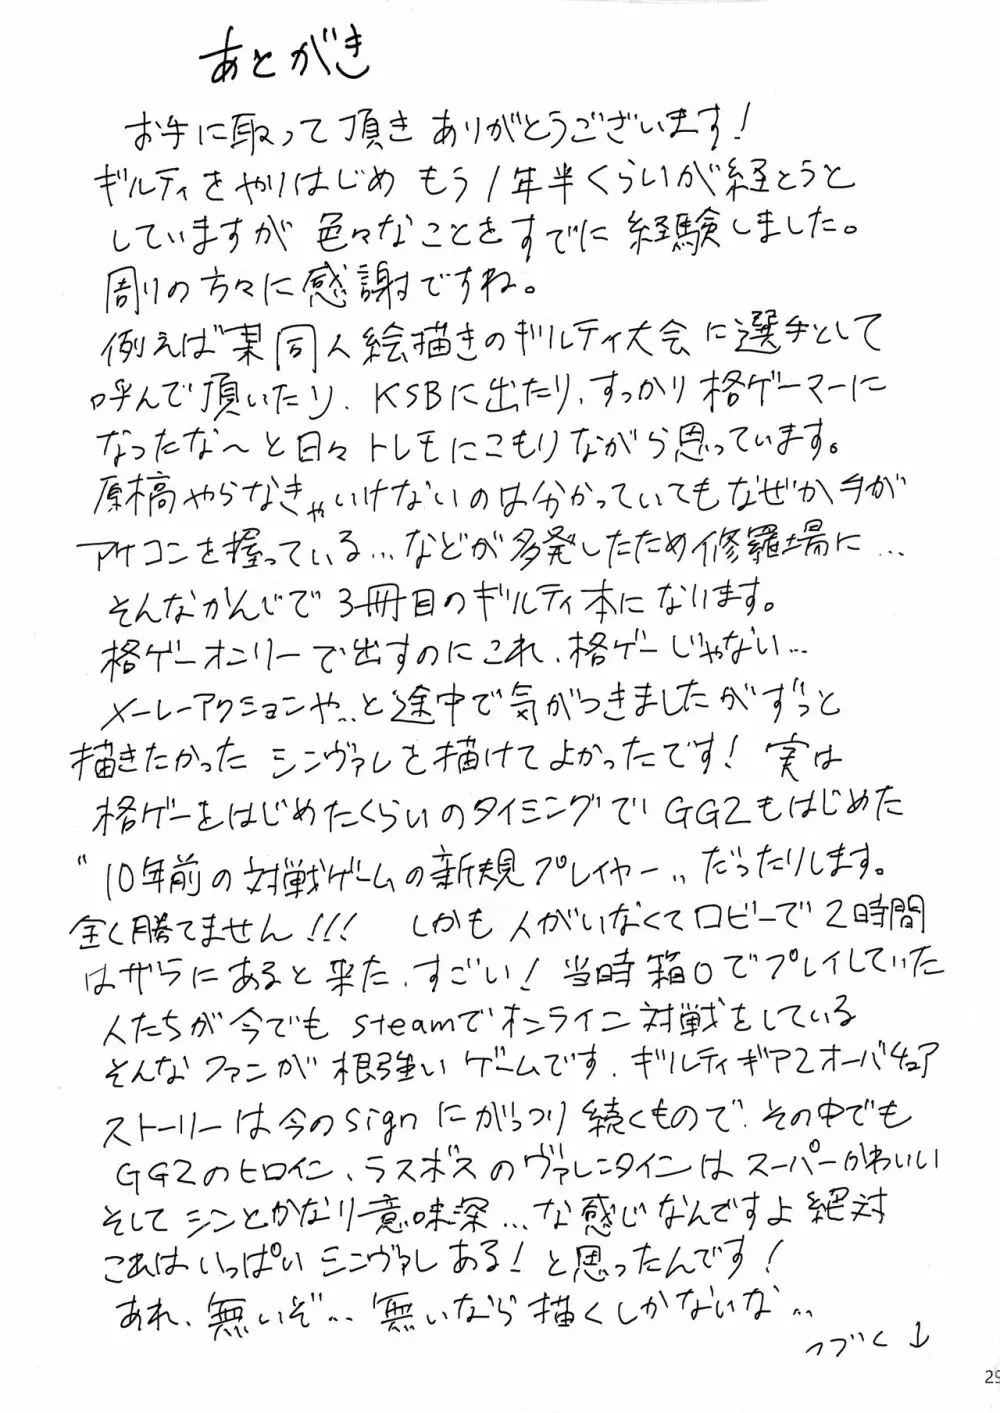 あとがき
お手に取って頂き ありがとうございます!
ギルティをやりはじめ もう1年半くらいが経とうと
していますが 色々なことをすでに経験しました。
周りの方々に感謝ですね。
例えば某同人絵描きのギルティ大会に選手として
呼んで頂いたり、KSBに出たり、すっかり格ゲーマーに
なったな〜と日々トレモにこもりながら思っています。
原稿やらなきゃいけないのは分かっていてもなぜか手が
アケコンを握っている...などが多発したため修羅場に...
そんなかんじで3冊目のギルティ本になります。
格ゲーオンリーで出すのにこれ、格ゲーじゃない...
メーレーアクションや...と途中で気がつきましたがずっと
描きたかった シンヴァレを描けてよかったです! 実は
格ゲーをはじめたくらいのタイミングで GG2もはじめた
“10年前の対戦ゲームの新規プレイヤー„だったりします。
全く勝てません!!! しかも人がいなくてロビーで2時間
はザラにあると来た、すごい! 当時箱〇でプレイしていた
人たちが今でも steamでオンライン対戦をしている
そんなファンが根強いゲームです、ギルティギア2オーバチュア
ストーリーは今のsignにがっつり続くもので、その中でも
GG2のヒロイン、ラスボスのヴァレンタインはスーパーかわいい
そしてシンとかなり意味深...な感じなんですよ絶対
これはいっぱいシンヴァレある!と思ったんです!
あれ、無いぞ... 無いなら描くしかないな...
つづく↓
29